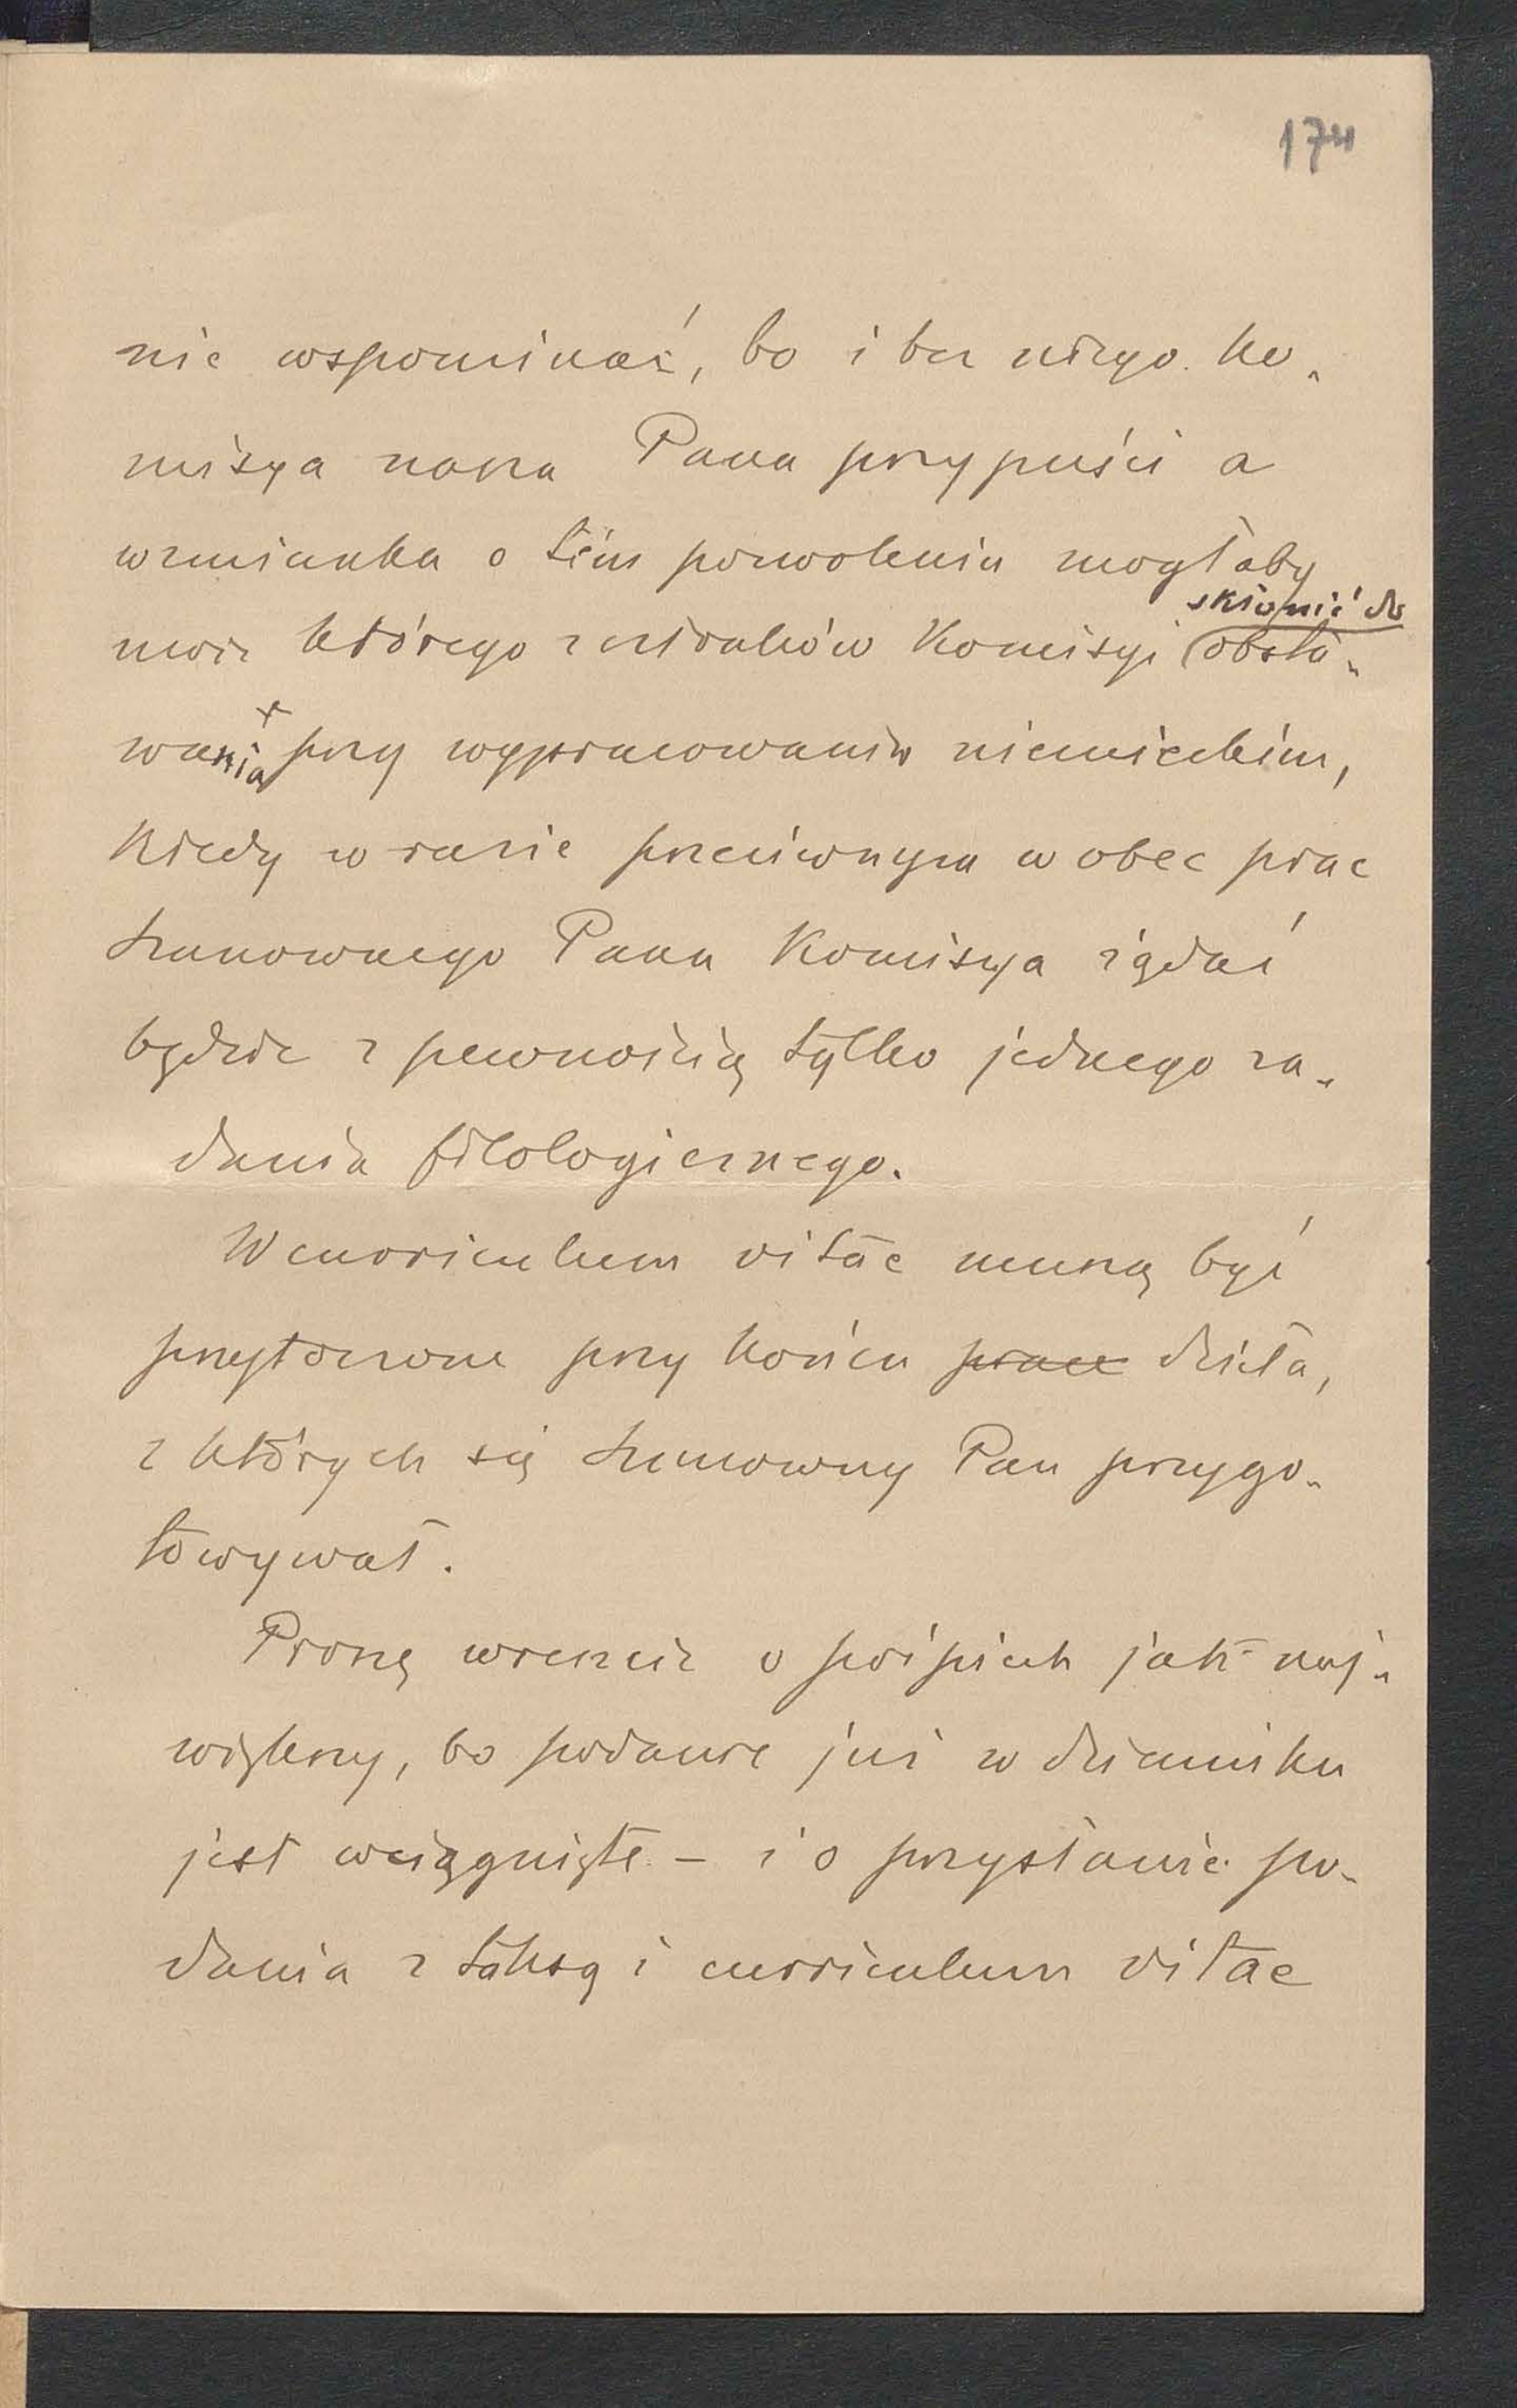 174
nie wspominać, bo i bez niego Ko-
misya nasza Pana przypuści a
wzmianka o tém pozwoleniu mogłaby
skłonić do
może którego z członków Komisyi obsta-
wania przy wypracowaniu niemieckim,
kiedy w razie przeciwnym wobec prac
Szanownego Pana Komisya żądać
będzie z pewnością tylko jednego za-
dania filologicznego.
W curriculum vitae muszą być
przytoczone przy końcu prace dzieła,
z których się Szanowny Pan przygo-
towywał.
Proszę wreszcie o pośpiech jak naj-
większy, bo podanie już w dzienniku
jest wciągnięte – i o przysłanie po-
dania z taksą i curriculum vitae